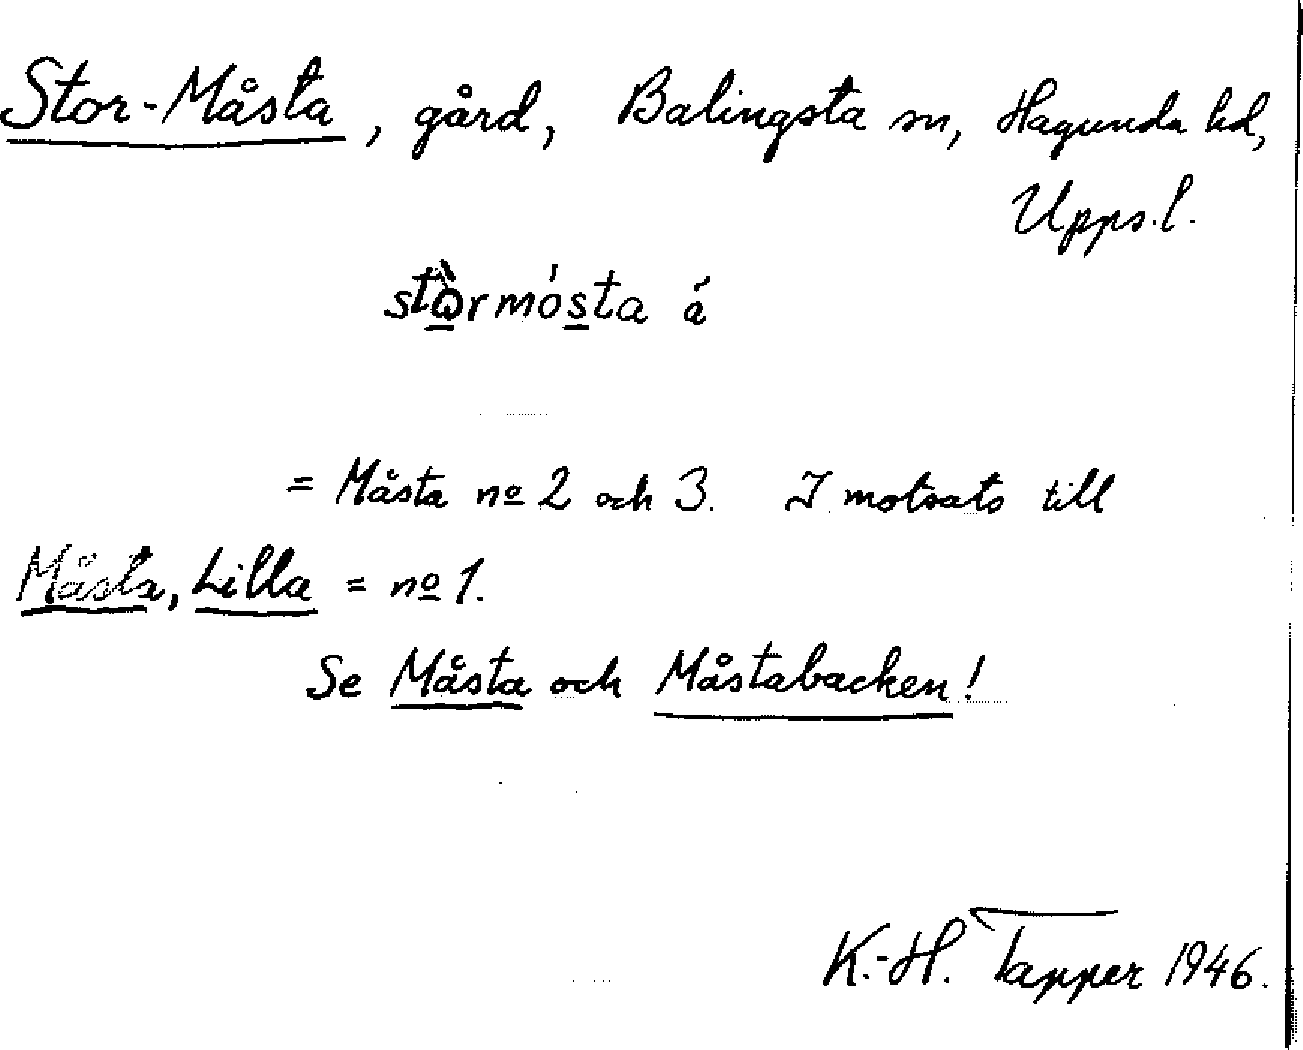 Stor-Måsta, gård, Balingsta sn, Hagunda hd,
Upps.l.
stòrmósta á
= Måsta nº 2 och 3. I motsats till
Måsta, Lilla = nº 1.
Se Måsta och Måstabacken!
K.-H. Tapper 1946.